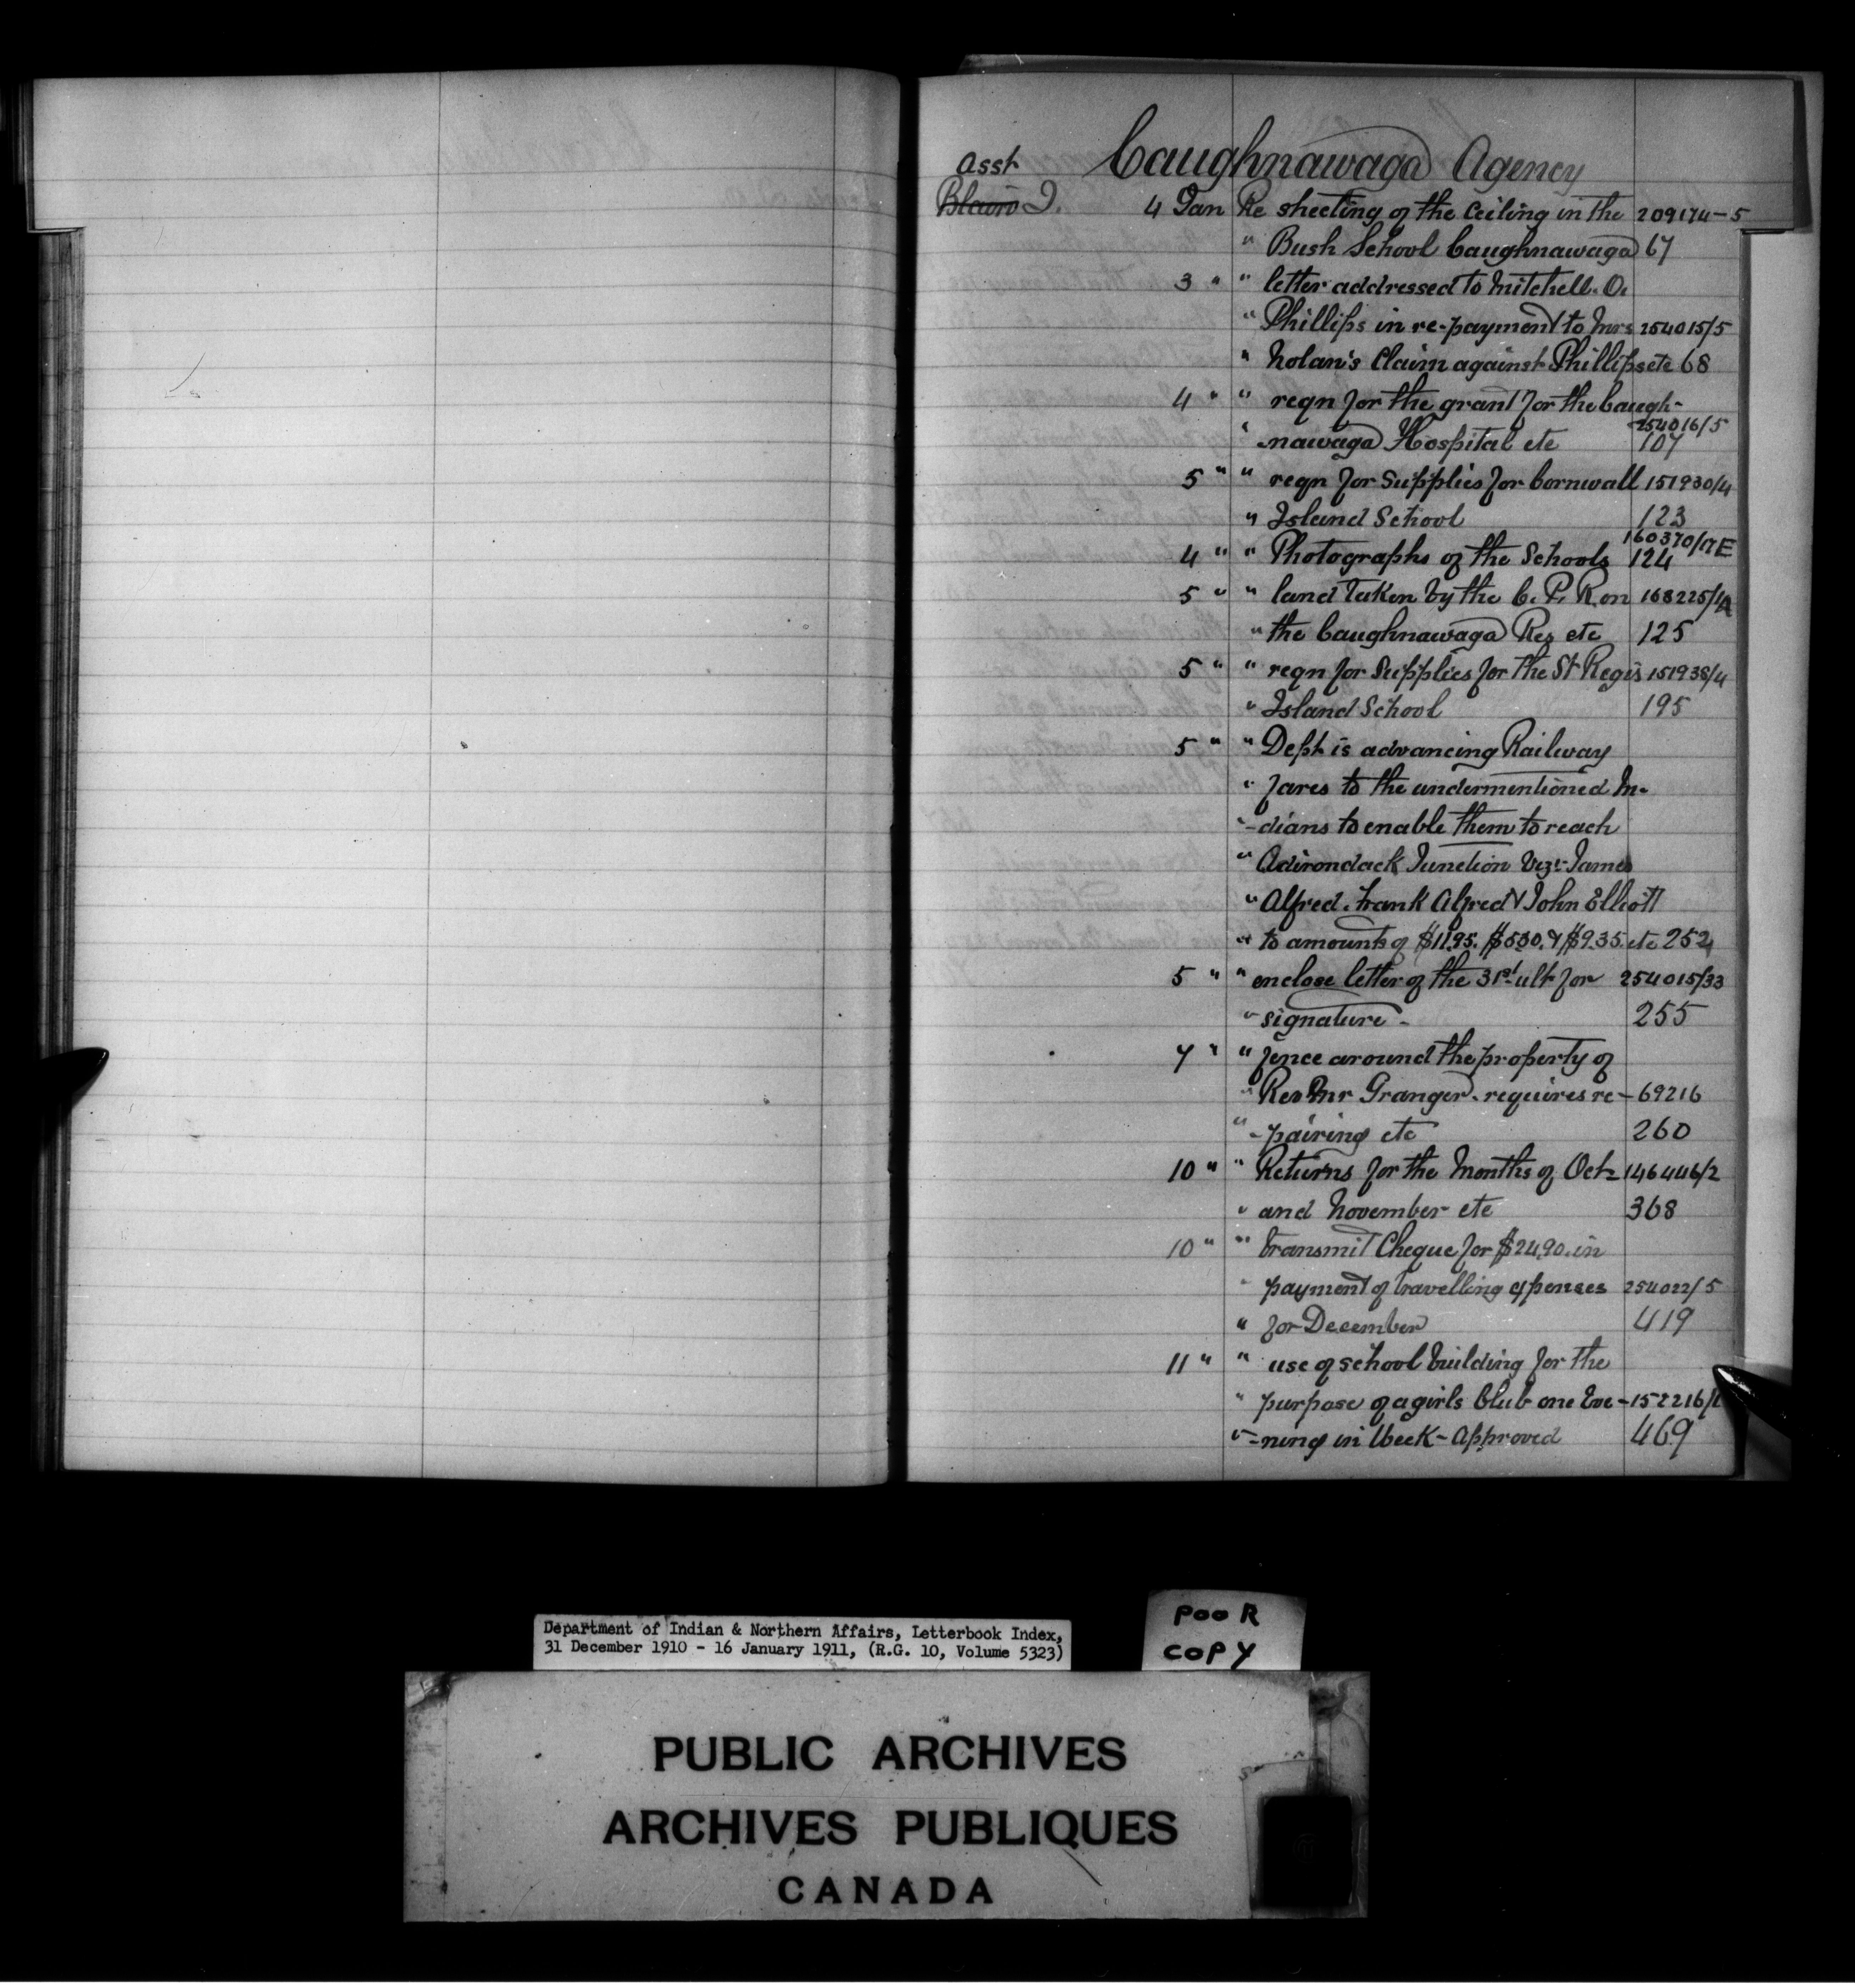 Caughnawaga Agency
Asst
Blair J. 4 Jan Re sheeting of the Ceiling in the 209174-5
" Bush School Caughnawaga 67
3 " " letter addressed to Mitchell. O.
" Phillips in re-payment to Mrs 254015/5
" Nolan's Claim against Phillips etc 68
4 " " reqn for the grant for the Caugh-
254016/5
" -nawaga Hospital etc 107
5 " " reqn for Supplies for Cornwall 151930/4
" Island School 123
160370/17E
4 " " Photographs of the Schools 124
5 " " land taken by the C. P. R. on 168225/1A
" the Caughnawaga Res etc 125
5 " " reqn for Supplies for the St Regis 151938/4
" Island School 195
5 " " Dept is advancing Railway
" fares to the undermentioned In-
" -dians to enable them to reach
" Adirondack Junction Viz:- James
" Alfred. Frank Alfred & John Elliott
" to amounts of $11.95. $5.30. & $9.35. etc 252
5 " " enclose letter of the 31st ult for 254015/33
" signature - 255
7 " " fence around the property of
" Rev Mr Granger. requires re- 69216
" -pairing etc 260
10 " " Returns for the Months of Oct- 146446/2
" and November etc 368
10 " " transmit Cheque for $24.90. in
" payment of travelling expenses 254022/5
" for December 419
11 " " use of school building for the
" purpose of a girls Club one Eve- 152216/
" -ning in Week - Approved 469
POOR
COPY
Department of Indian & Northern Affairs, Letterbook Index,
31 December 1910 - 16 January 1911, (R.G. 10, Volume 5323)
PUBLIC ARCHIVES
ARCHIVES PUBLIQUES
CANADA